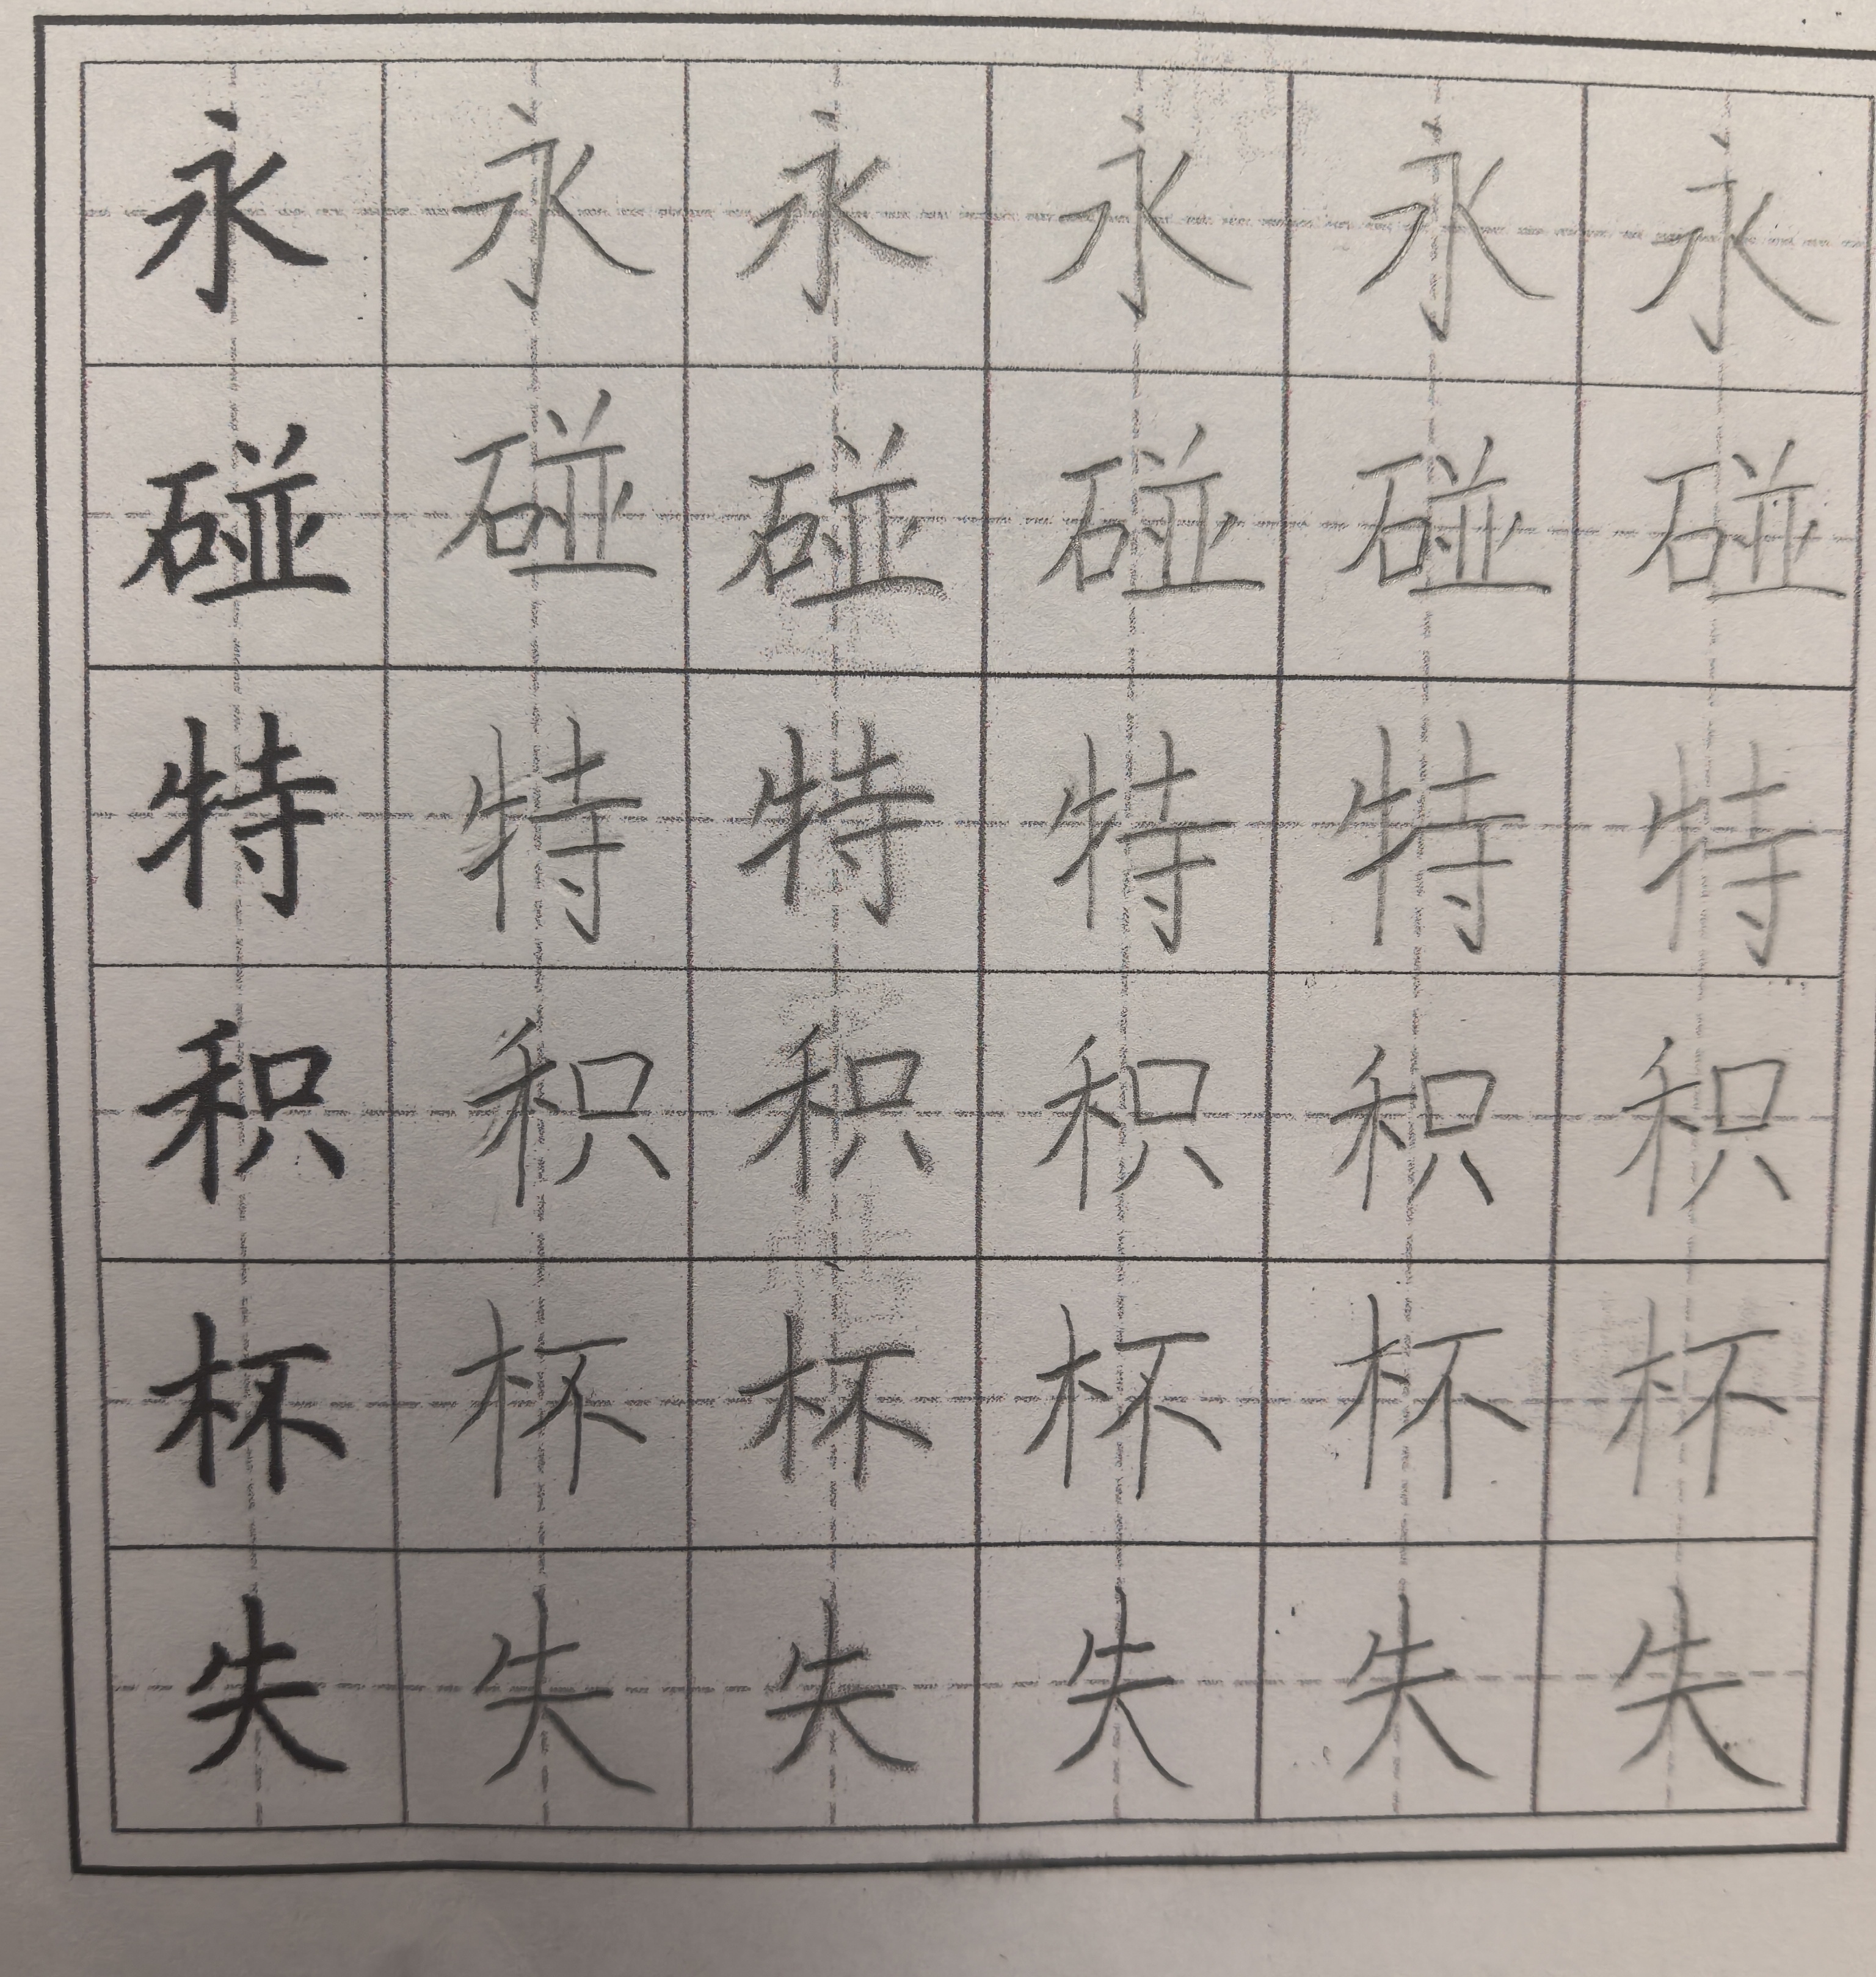 永永永永永永
碰碰碰碰碰碰
特特特特特特
积积积积积积
杯杯杯杯杯杯
失失失失失失